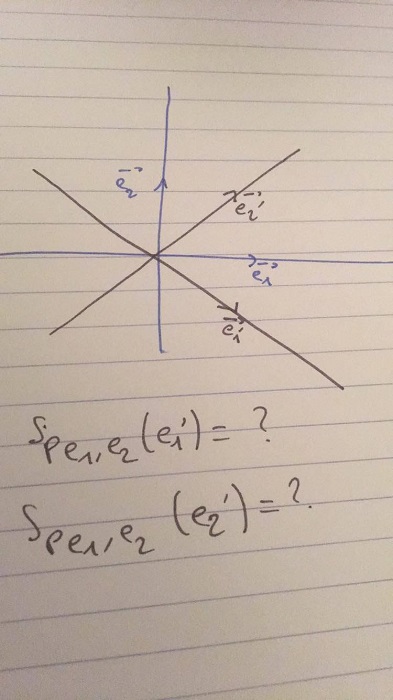 e₂
e₂'
e₁
e₁'
S_{pe₁,e₂}(e₁') = ?
S_{pe₁,e₂}(e₂') = ?.